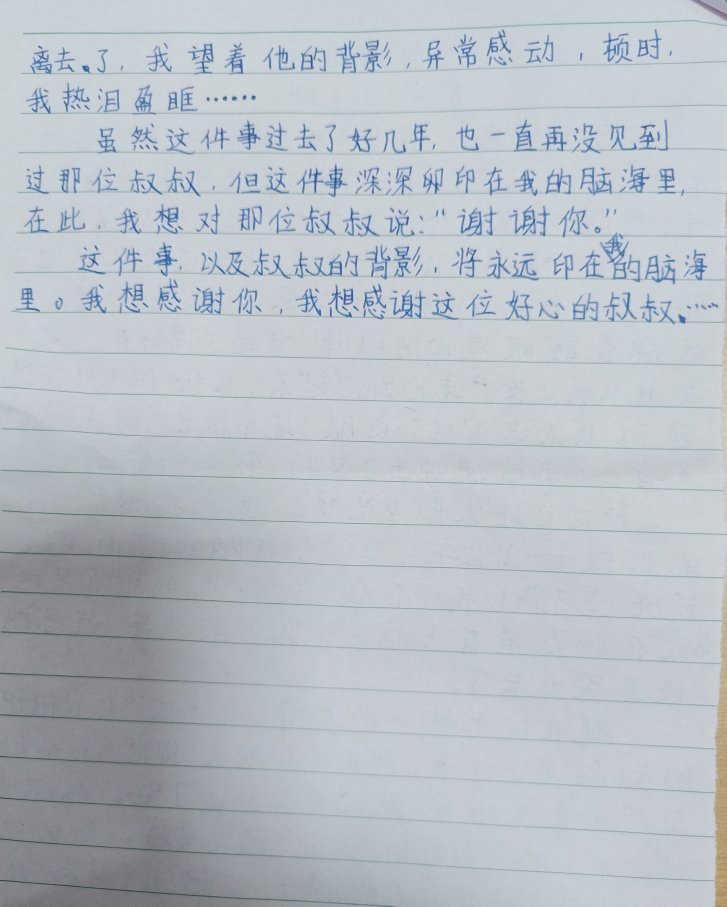 离去了，我望着他的背影，异常感动，顿时，
我热泪盈眶……
虽然这件事过去了好几年，也一直再没见到
过那位叔叔，但这件事深深卵印在我的脑海里，
在此，我想对那位叔叔说：“谢谢你。”
这件事，以及叔叔的背影，将永远印在我的脑海
里。我想感谢你，我想感谢这位好心的叔叔。……